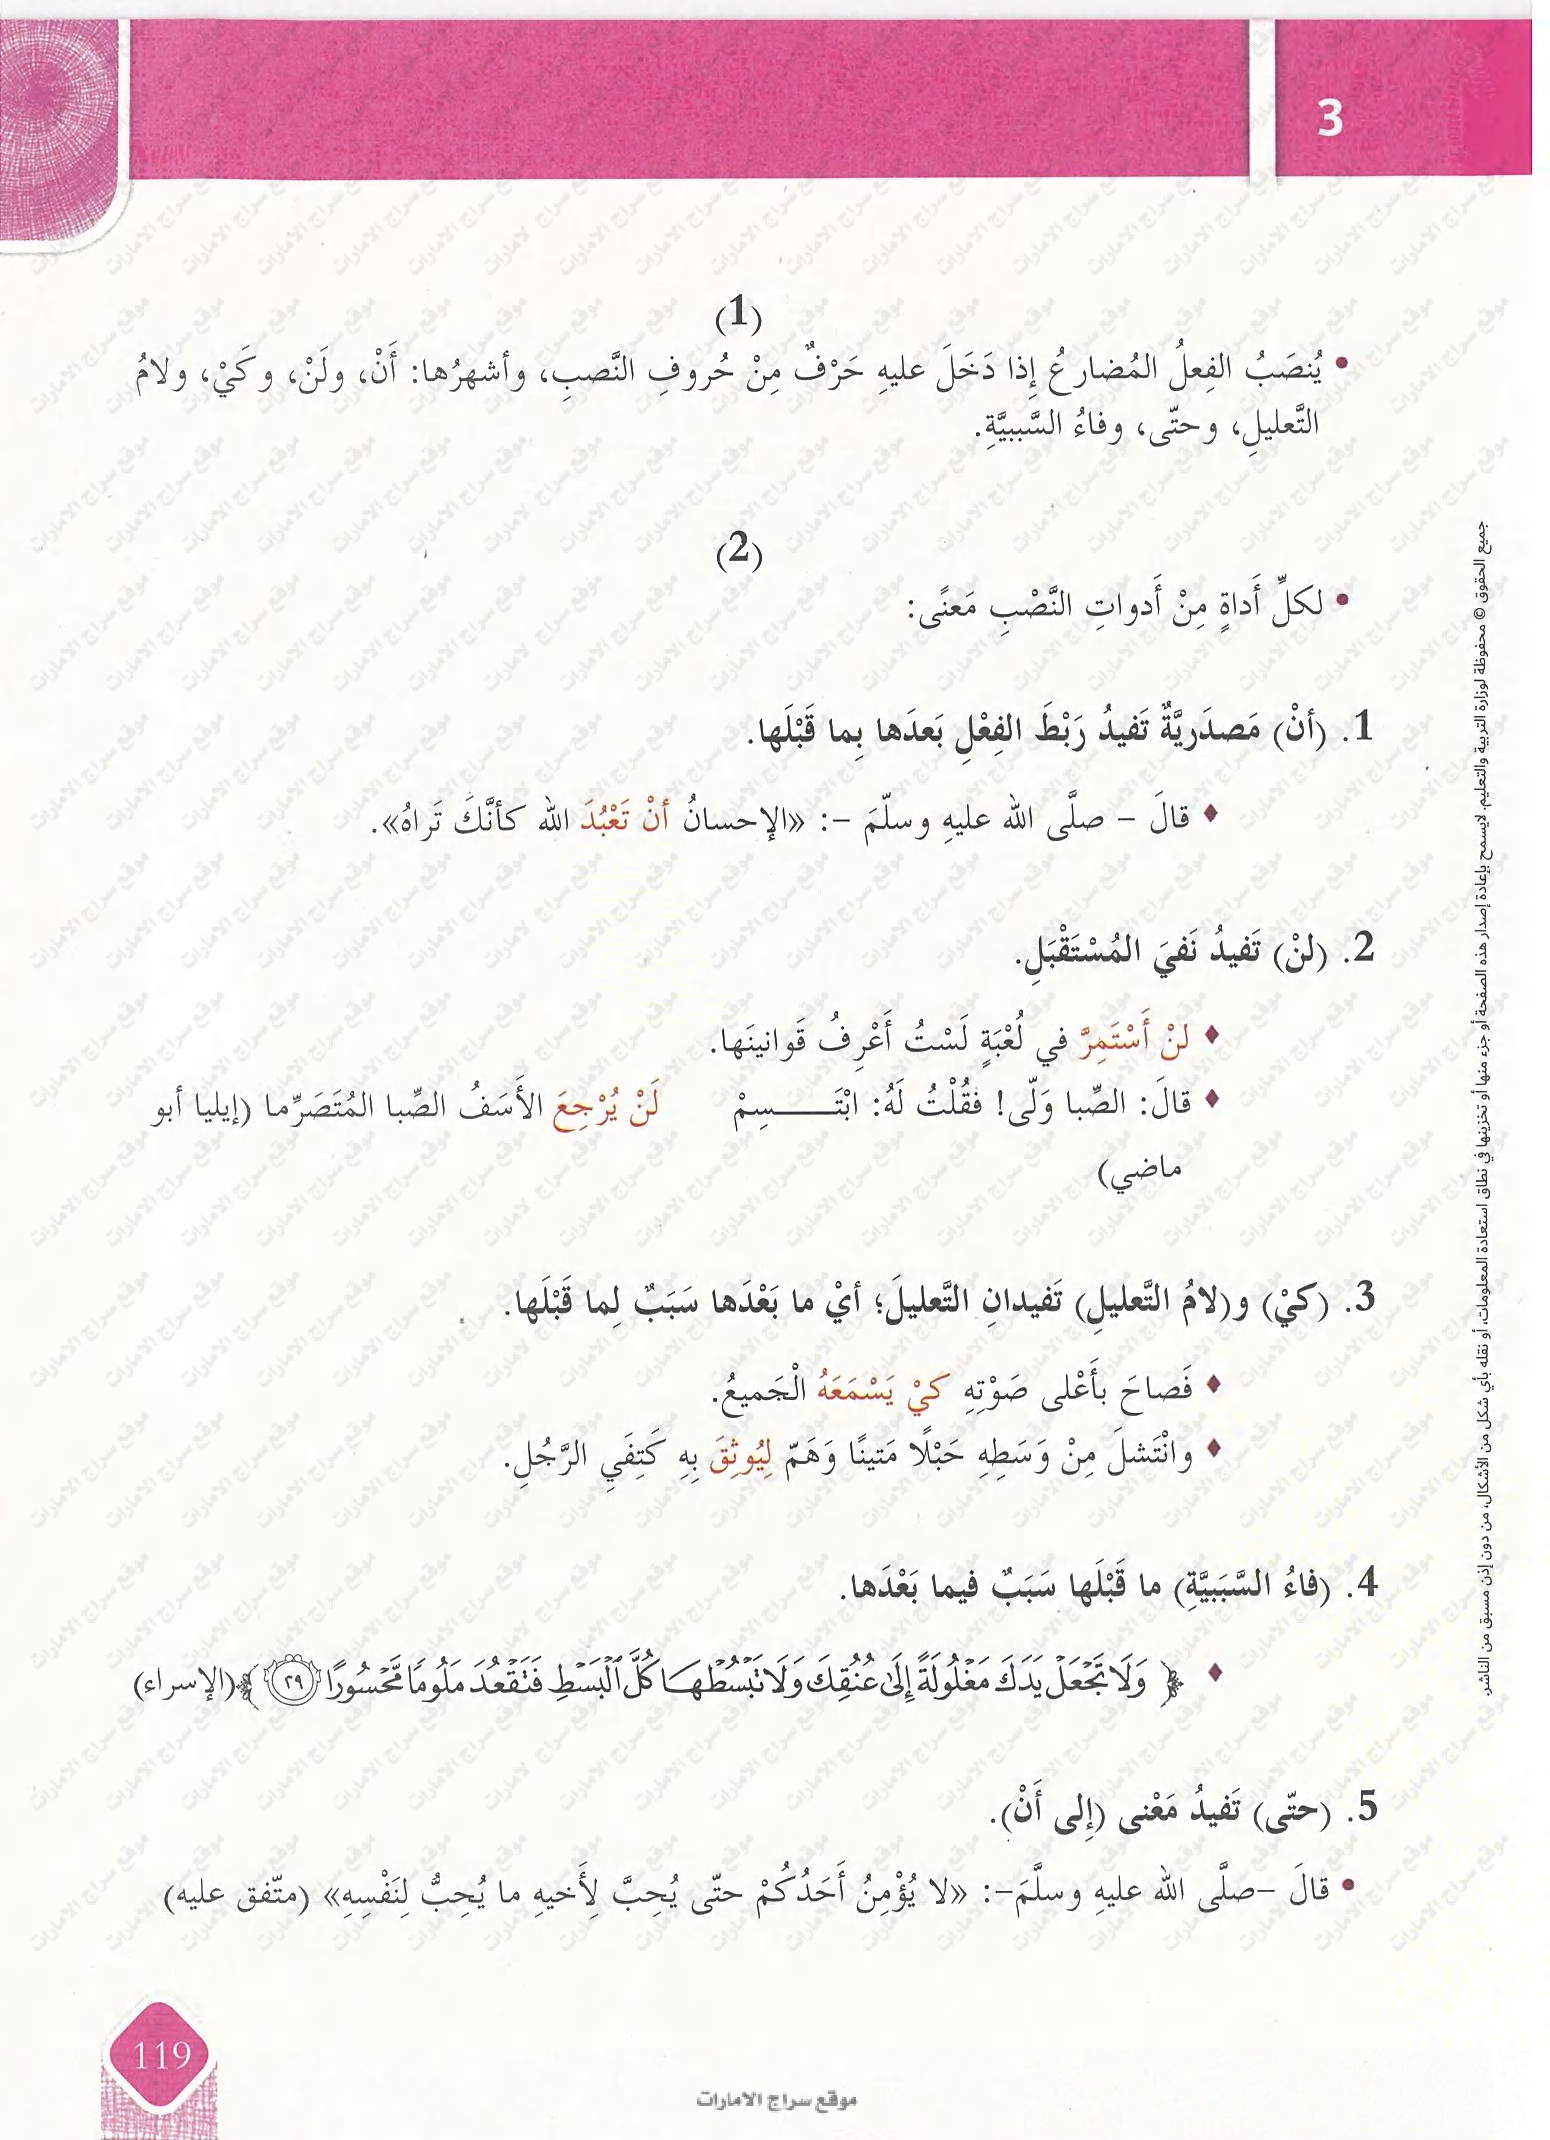 3
(1)
• يُنصَبُ الفِعلُ المُضارعُ إِذا دَخَلَ عليهِ حَرْفٌ مِنْ حُروفِ النَّصبِ، وأشهرُها: أَنْ، ولَنْ، وكَيْ، ولامُ
التَّعليلِ، وحتّى، وفاءُ السَّببيَّةِ.
(2)
• لكلِّ أَداةٍ مِنْ أَدواتِ النَّصْبِ مَعنًى:
1. (أنْ) مَصدَريَّةٌ تَفيدُ رَبْطَ الفِعْلِ بَعدَها بِما قَبْلَها.
♦ قالَ - صلَّى الله عليهِ وسلّمَ -: «الإحسانُ أنْ تَعْبُدَ الله كأنَّكَ تَراهُ».
2. (لنْ) تَفيدُ نَفيَ المُسْتَقْبَلِ.
♦ لنْ أَسْتَمِرَّ في لُعْبَةٍ لَسْتُ أَعْرِفُ قَوانينَها.
♦ قالَ: الصِّبا وَلّى! فقُلْتُ لَهُ: ابْتَـــــسِمْ لَنْ يُرْجِعَ الأَسَفُ الصِّبا المُتَصَرِّما (إيليا أبو
ماضي)
3. (كيْ) و(لامُ التَّعليلِ) تَفيدانِ التَّعليلَ؛ أيْ ما بَعْدَها سَبَبٌ لِما قَبْلَها.
♦ فَصاحَ بأَعْلى صَوْتِهِ كيْ يَسْمَعَهُ الْجَميعُ.
♦ وانْتَشلَ مِنْ وَسَطِهِ حَبْلًا مَتينًا وَهَمّ لِيُوثِقَ بِهِ كَتِفَي الرَّجُلِ.
4. (فاءُ السَّبَبيَّةِ) ما قَبْلَها سَبَبٌ فيما بَعْدَها.
♦ ﴿ وَلَا تَجْعَلْ يَدَكَ مَغْلُولَةً إِلَىٰ عُنُقِكَ وَلَا تَبْسُطْهَا كُلَّ الْبَسْطِ فَتَقْعُدَ مَلُومًا مَّحْسُورًا ٢٩ ﴾ (الإسراء)
5. (حتّى) تَفيدُ مَعْنى (إِلى أَنْ).
• قالَ -صلَّى الله عليهِ وسلَّمَ-: «لا يُؤْمِنُ أَحَدُكُمْ حتّى يُحِبَّ لِأَخيهِ ما يُحِبُّ لِنَفْسِهِ» (متّفق عليه)
جميع الحقوق © محفوظة لوزارة التربية والتعليم. لايسمح بإعادة إصدار هذه الصفحة أو جزء منها أو تخزينها في نطاق استعادة المعلومات، أو نقله بأي شكل من الأشكال، من دون إذن مسبق من الناشر.
119
موقع سراج الامارات